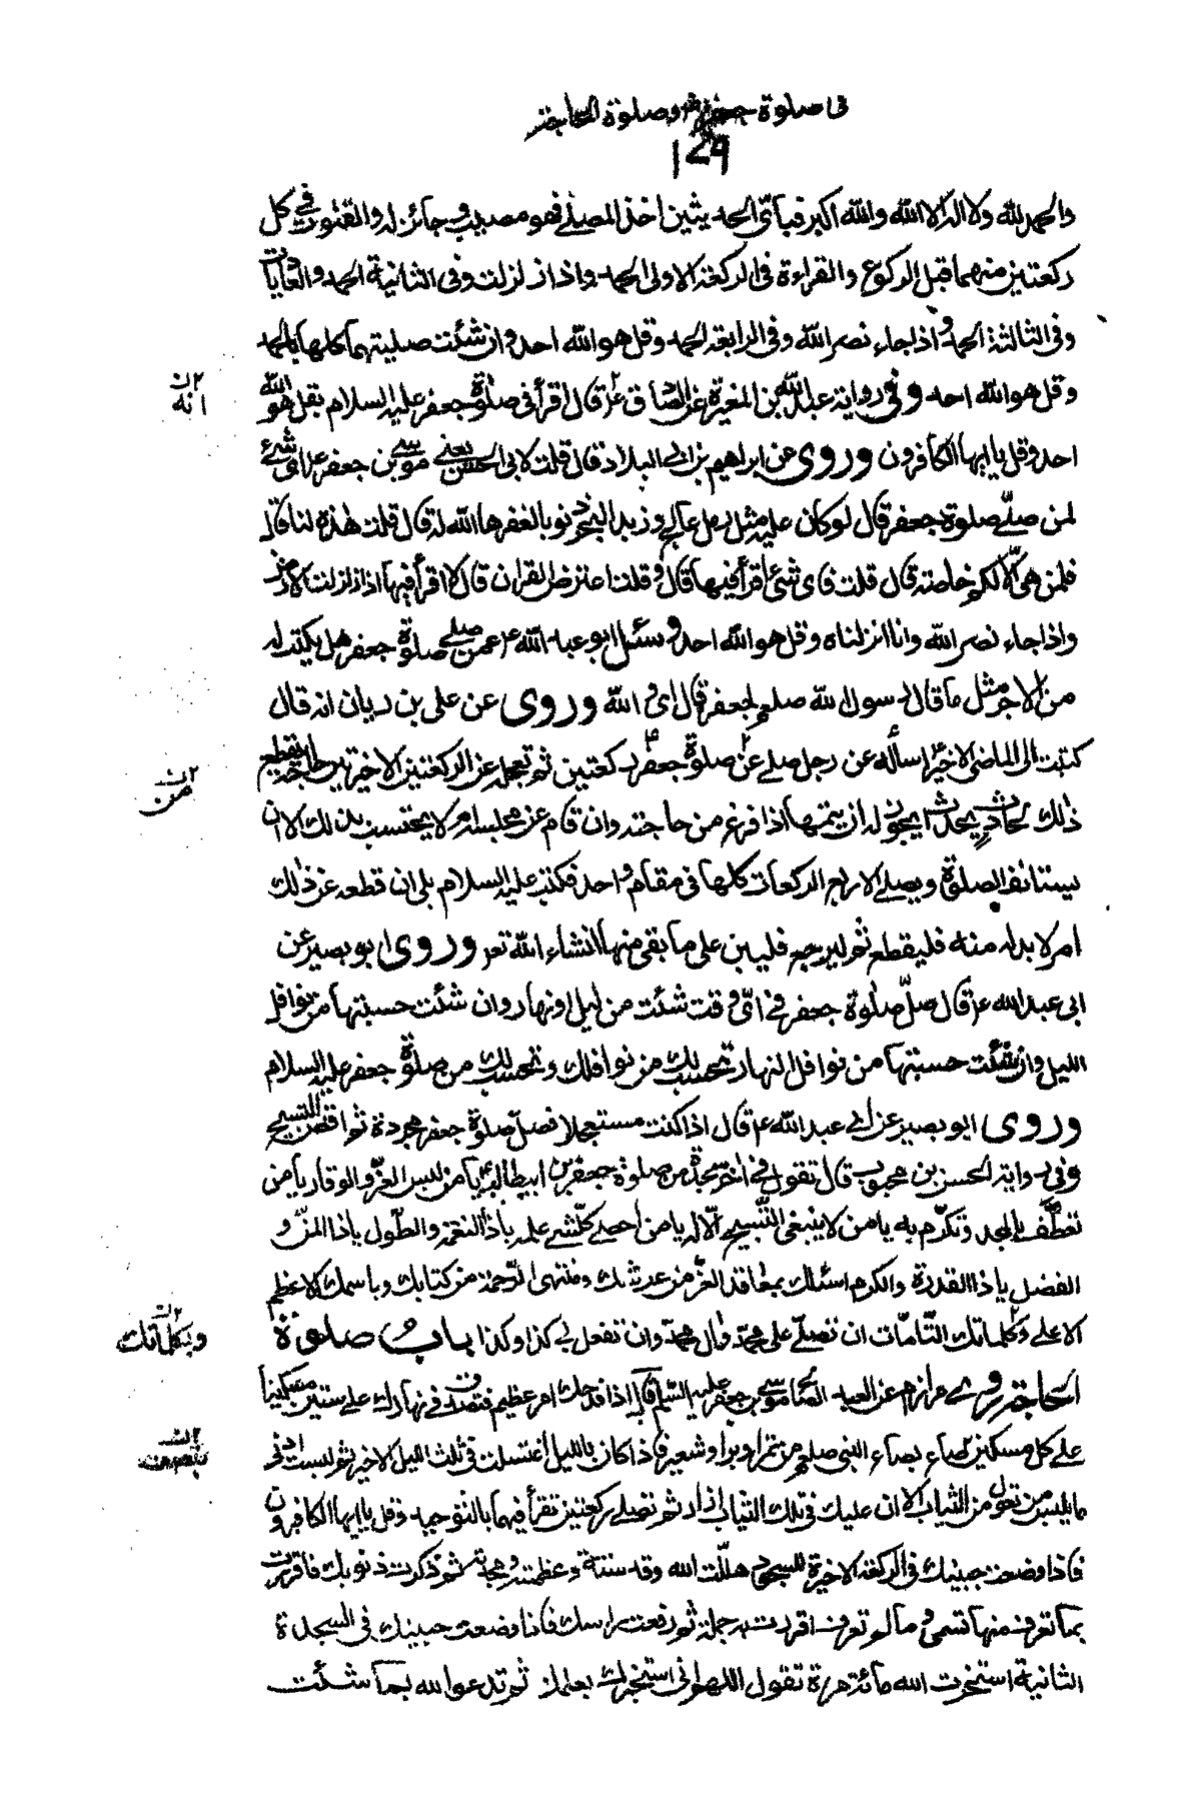 في صلوة جعفر وصلوة الحاجة
129
والحمد لله ولا اله الا الله والله اكبر فبأىّ الحديثين اخذ المصلى فهو مصيب وجائز له والقنوت في كل
ركعتين منهما قبل الركوع والقراءة فى الركعة الاولى الحمد واذا زلزلت وفى الثانية الحمد والعاديات
وفى الثالثة الحمد واذا جاء نصر الله وفى الرابعة الحمد وقل هو الله احد وان شئت صليتهما كلها بالحمد
وقل هو الله احد وفى رواية عبد الله بن المغيرة عن الصادق ع قال اقرأ فى صلوة جعفر عليه السلام بقل هو الله
٢ن
انه
احد وقل يا ايها الكافرون وروى عن ابراهيم بن ابى البلاد قال قلت لابى الحسن يعنى موسى بن جعفر ع اى شئ
لمن صلّى صلوة جعفر قال لو كان عليه مثل رمل عالج وزبد البحر ذنوبا لغفرها الله له قال قلت هذه لنا قال
فلمن هى الّا لكم خاصة قال قلت فاى شئ اقرأ فيها قال وقلت اعترض القران قال لا اقرأ فيها اذا زلزلت الارض
واذا جاء نصر الله وانا انزلناه وقل هو الله احد وسئل ابو عبد الله ع عمن صلى صلوة جعفر هل يكتب له
من الاجر مثل ما قال رسول الله صلعم لجعفر قال اى والله وروى عن على بن ريان انه قال
كتبت الى الماضى الاخير ع اسأله عن رجل صلى من صلوة جعفر ع ركعتين ثم تعجله عن الركعتين الاخيرتين حاجة ايقطع
٢ن
من
ذلك بحادث يحدث ايجوز له ان يتمها اذا فرغ من حاجته وان قام عن مجلسه ام لا يحتسب بذلك الا ان
يستانف الصلوة ويصلى الاربع الركعات كلها فى مقام واحد فكتب عليه السلام بلى ان قطعه عن ذلك
امر لا بد له منه فليقطع ثم ليرجع فليبن على ما بقى منها انشاء الله تعر وروى ابو بصير عن
ابى عبد الله ع قال صلّ صلوة جعفر فى اىّ وقت شئت من ليل او نهار وان شئت حسبتها من نوافل
الليل وان شئت حسبتها من نوافل النهار تحسب لك من نوافلك وتحسب لك من صلوة جعفر عليه السلام
وروى ابو بصير عن ابى عبد الله ع قال اذا كنت مستعجلا فصل صلوة جعفر مجردة ثم اقض التسبيح
وفى رواية الحسن بن محبوب قال تقول فى اخر سجدة من صلوة جعفر بن ابيطالب ع يا من لبس العزّ والوقار يا من
تعطّف بالمجد وتكرّم به يا من لا ينبغى التّسبيح الّا له يا من احصى كلّ شئ علمه يا ذا النعمة والطّول يا ذا المنّ و
الفضل يا ذا القدرة والكرم اسئلك بمعاقد العزّ من عرشك ومنتهى الرّحمة من كتابك وباسمك الاعظم
الاعلى وكلماتك التّامّات ان تصلّى على محمّد وال محمّد وان تفعل بى كذا وكذا باب صلوة
٢ن
وبكلماتك
الحاجة روى مرازم عن العبد الصالح موسى بن جعفر عليه السّلم قال اذا فدحك امر عظيم فتصدق فى نهارك على ستين مسكينا
على كل مسكين صاع بصاع النبى صلعم من تمر او بر او شعير فاذا كان بالليل اغتسلت فى ثلث الليل الاخير ثم لبست ادنى
٢ن
ما يلبس من تعول من الثياب الا ان عليك فى تلك الثياب ازار ثم تصلى ركعتين تقرأ فيهما بالتوحيد وقل يا ايها الكافرون
فاذا وضعت جبينك فى الركعة الاخيرة للسجود هللت الله وقدسته وعظمته ومجدته ثم ذكرت ذنوبك فاقررت
بما تعرف منها تسمى وما لم تعرف اقررت به جملة ثم رفعت راسك فاذا وضعت جبينك فى السجدة
الثانية استخرت الله مائة مرة تقول اللهم انى استخيرك بعلمك ثم تدعو الله بما شئت